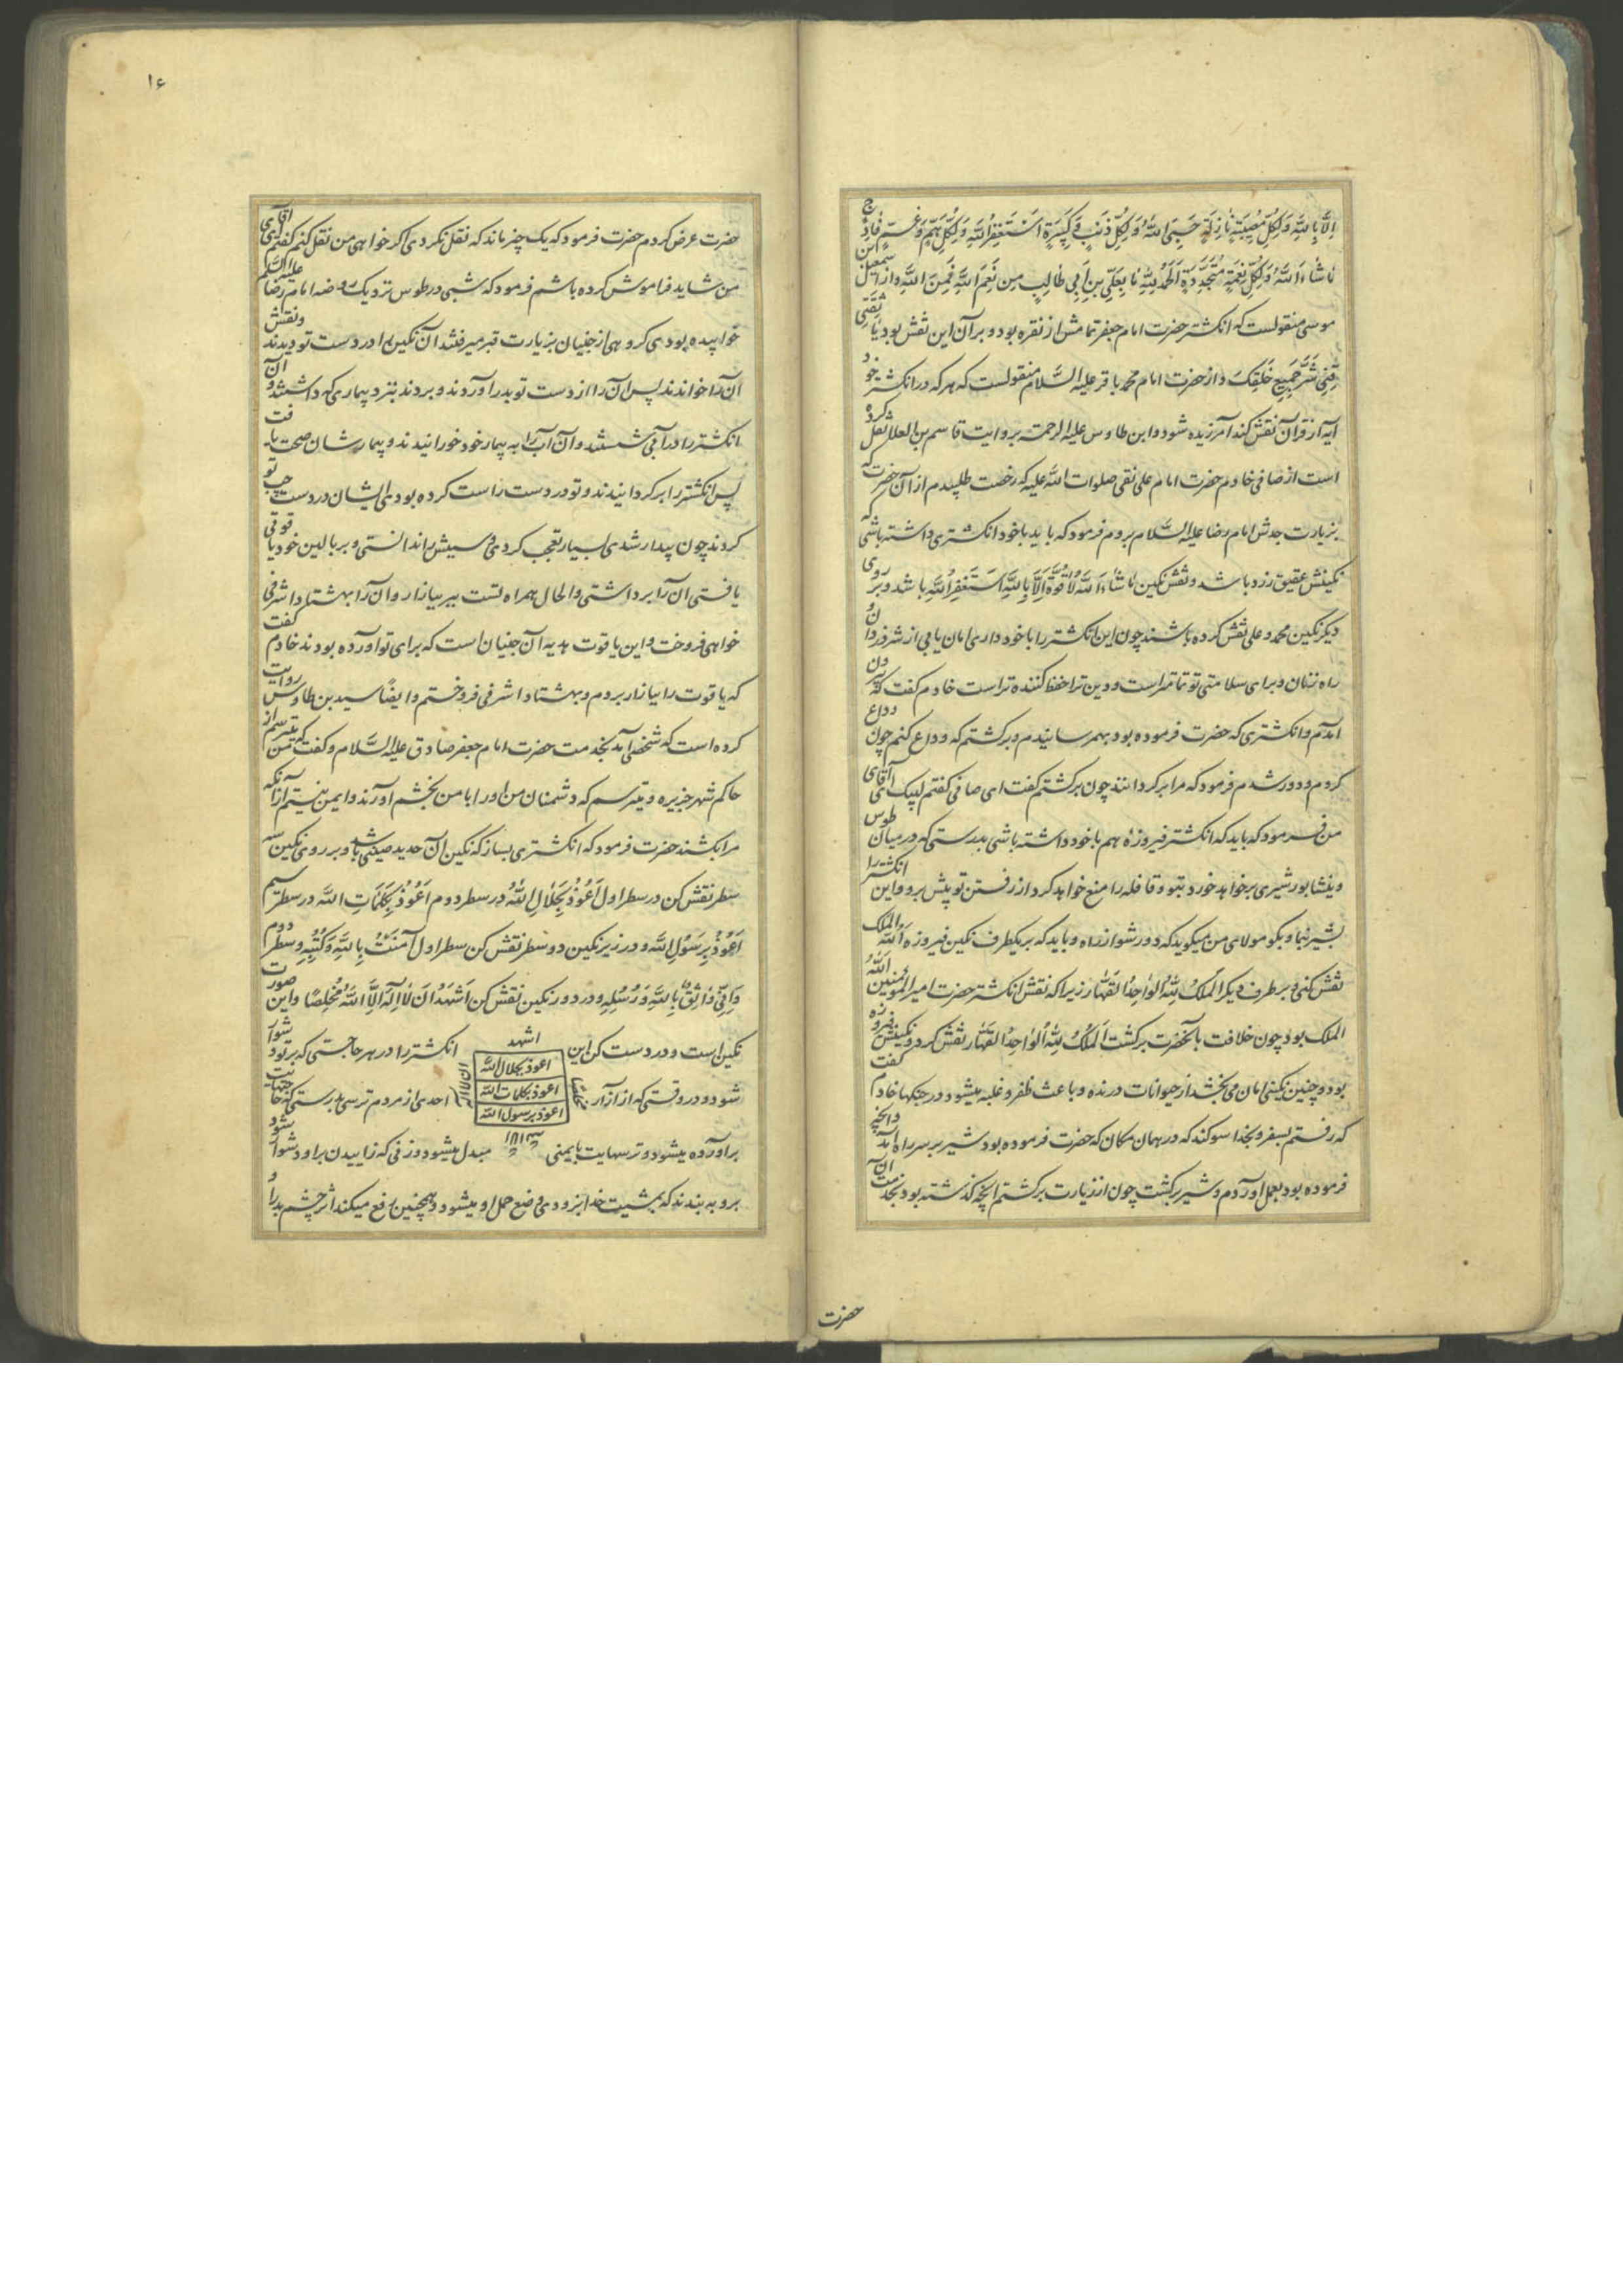 اِلَّا بِاللهِ وَلِکُلِّ مُصِیبَتِهٍ نٰازِلَةٍ حَسبِیَ اللهُ وَلِکُلِّ ذَنبٍ وَ کَبِیَرةٍ اَستَغفِرُ اللهَ وَلِکُلِّ هَمٍّ وَغَمٍّ فٰادِحٍ
مٰاشٰاءَ اللهُ وَلِکُلِّ نِعمَةٍ مُتَجَدِّدَةٍ اَلحَمدُ لِلّهِ مٰا بِعَلِّیِ بنِ اَبِی طٰالِبٍ مِن نِعَمِ اللهِ فَمِنَ اللهِ و از اسمعیل بن
موسی منقولست که انکشتر حضرت امام جعفر تمامش از نقره بود و بر آن این نقش بود یٰا ثِقَتِی
قِنِی شَرَّ جَمِیعِ خَلقِکَ و از حضرت امام محمد باقر علیه السَّلام منقولست که هر که در انکشتر خود
آیه از قرآن نقش کند آمرزیده شود و ابن طاوس علیه الرحمته بروایت قاسم بن العلا نقل کرده
است از صافی خادم حضرت امام علی نقی صلوات الله علیه که رخصت طلبیدم از آن حضرت که
بزیارت جدش امام رضا علیه السَّلام بروم فرمود که باید با خود انکشتری داشته باشی که
نکینش عقیق زرد باشد و نقش نکین مٰاشٰاءَ اللهُ لٰا قُوَّةَ اِلَّا بِاللهِ اَستَغفِرُ اللهَ باشد و بر روی
دیکر نکین محمد و علی نقش کرده باشند چون این انکشتر را با خود داری امان یابی از شر دزدان و
راه زنان و برای سلامتی تو تمامتر است و دین ترا حفظ کننده تر است خادم کفت که بیرون
آمدم و انکشتری که حضرت فرموده بود بهمرسانیدم و برکشتم که وداع کنم چون وداع
کردم و دور شدم فرمود که مرا برکردانند چون برکشتم کفت ای صافی کفتم لبیک ای آقای
من فرمود که باید که انکشتر فیروزه هم با خود داشته باشی بدرستی که در میان طوس
و نیشابور شیری برخواهد خورد بتو و قافله را منع خواهد کرد از رفتن تو پیش برو و این انکشتر را
بشیر بنما و بکو مولای من میکوید که دور شو از راه و باید که بر یکطرف نکین فیروزه اَللهُ الملک
نقش کنی و بر طرف دیکر اَلملکُ لِلّهِ الوٰاحِدِ القَهّٰار زیرا که نقش انکشتر حضرت امیر المومنین اَللهُ
الملک بود چون خلافت بآنحضرت برکشت اَلمُلکُ لِلّهِ الوٰاحِدِ القَهّٰار نقش کرد و نکینش فیروزه
بود و چنین نکینی امان می بخشد از حیوانات درنده و باعث ظفر و غلبه میشود در جنکها خادم کفت
که رفتم بسفر و بخدا سوکند که در همان مکان که حضرت فرموده بود شیر بر سر راه آمد و آنچه
فرموده بود بعمل آوردم و شیر برکشت چون از زیارت برکشتم آنچه کذشته بود بخدمت آن
حضرت
۱۶
حضرت عرض کردم حضرت فرمود که یک چیز ماند که نقل نکردی اکر خواهی من نقل کنم کفتم ای آقای
من شاید فراموش کرده باشم فرمود که شبی در طوس نزدیک روضه امام رضا علیه السَّلام
خوابیده بودی کروهی از جنیان بزیارت قبر میرفتند آن نکین را در دست تو دیدند و نقش
آن را خواندند پس آن را از دست تو بدر آوردند و بردند بنزد بیماری که داشتند و آن
انکشتر را در آبی شستند و آن آب را به بیمار خود خورانیدند و بیمارشان صحت یافت
پس انکشتر را برکردانیدند و تو در دست راست کرده بودی ایشان در دست چپ تو
کردند چون بیدار شدی بسیار تعجب کردی و سببش را ندانستی و بر بالین خود یاقوتی
یافتی آن را برداشتی و الحال همراه تست ببر ببازار و آن را بهشتاد اشرفی
خواهی فروخت و این یاقوت هدیه آن جنیان است که برای تو آورده بودند خادم کفت
که یاقوت را ببازار بردم و بهشتاد اشرفی فروختم و ایضاً سید بن طاوس روایت
کرده است که شخصی آمد بخدمت حضرت امام جعفر صادق علیه السَّلام و کفت که من میترسم از
حاکم شهر جزیره و میترسم که دشمنان من او را با من بخشم آورند و ایمن نیستم از آنکه
مرا بکشند حضرت فرمود که انکشتری بساز که نکین آن حدید صینی باشد و بر روی نکین سه
سطر نقش کن در سطر اول اَعُوذُ بِجَلٰالِ اللهِ در سطر دوم اَعُوذُ بِکَلِمٰاتِ الله در سطر سیم
اَعُوذُ بِرَسُولِ الله و در زیر نکین دو سطر نقش کن سطر اول آمَنتُ بِاللهِ وَ کُتُبِهِ و سطر دوم
وَ اِنِّی وٰاثِقٌ بِاللهِ وَ رُسُلِهِ و در دور نکین نقش کن اَشهَدُ اَن لٰا اِلهَ اِلَّا اللهُ مُخلِصًا و این صورت
نکین است و در دست کن این انکشتر را در هر حاجتی که بر تو دشوار
اشهد
اعوذ بجلال الله
اعوذ بکلمات الله
اعوذ برسول الله
ان لا اله
شود و در وقتی که از آزار احدی از مردم ترسی بدرستی که حاجتهایت
برآورده میشود و ترسهایت بایمنی مبدل میشود و زنی که زاییدن بر او دشوار شود
بر و به بندند که بمشیت خدا بزودی وضع حمل او میشود و همچنین رفع میکند اثر چشم بد را و